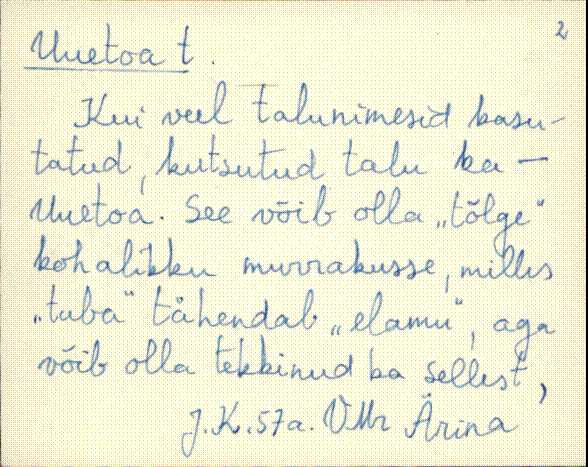 2
Uuetoa t.
Kui veel talunimesid kasu-
tatud, kutsutud talu ka —
Uuetoa. See võib olla „tõlge"
kohalikku murrakusse, milles
„tuba" tähendab „elamu", aga
võib olla tekkinud ka sellest,
J.K. 57a. VMr Ärina